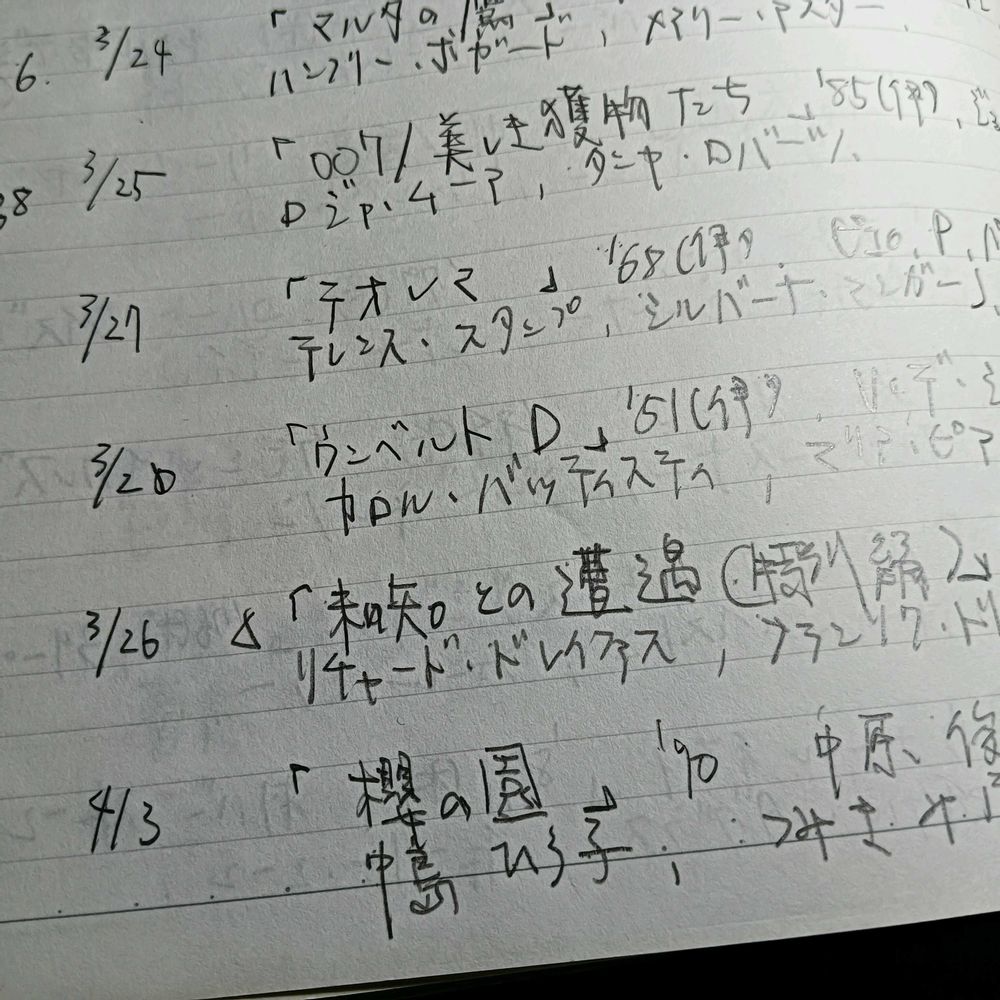 6. 3/24 「マルタの鷹」
ハンフリー・ボガード, メアリー・アスター,
38 3/25 「007/美しき獲物たち」 '85(伊),
ロジャ・ムーア, タニヤ・ロバーツ,
3/27 「テオレマ」 '68(伊), ピエロ, P, パ
テレンス・スタンプ, シルバーナ・マンガーノ
3/28 「ウンベルト D」 '51(伊),
カロル・バッティスティ, マリア・ピア
3/26 & 「未知との遭遇(特別編)」
リチャード・ドレイファス, フランソワ・トリ
4/3 「櫻の園」 '90 中原、俊
中島 ひろ子, つみき み